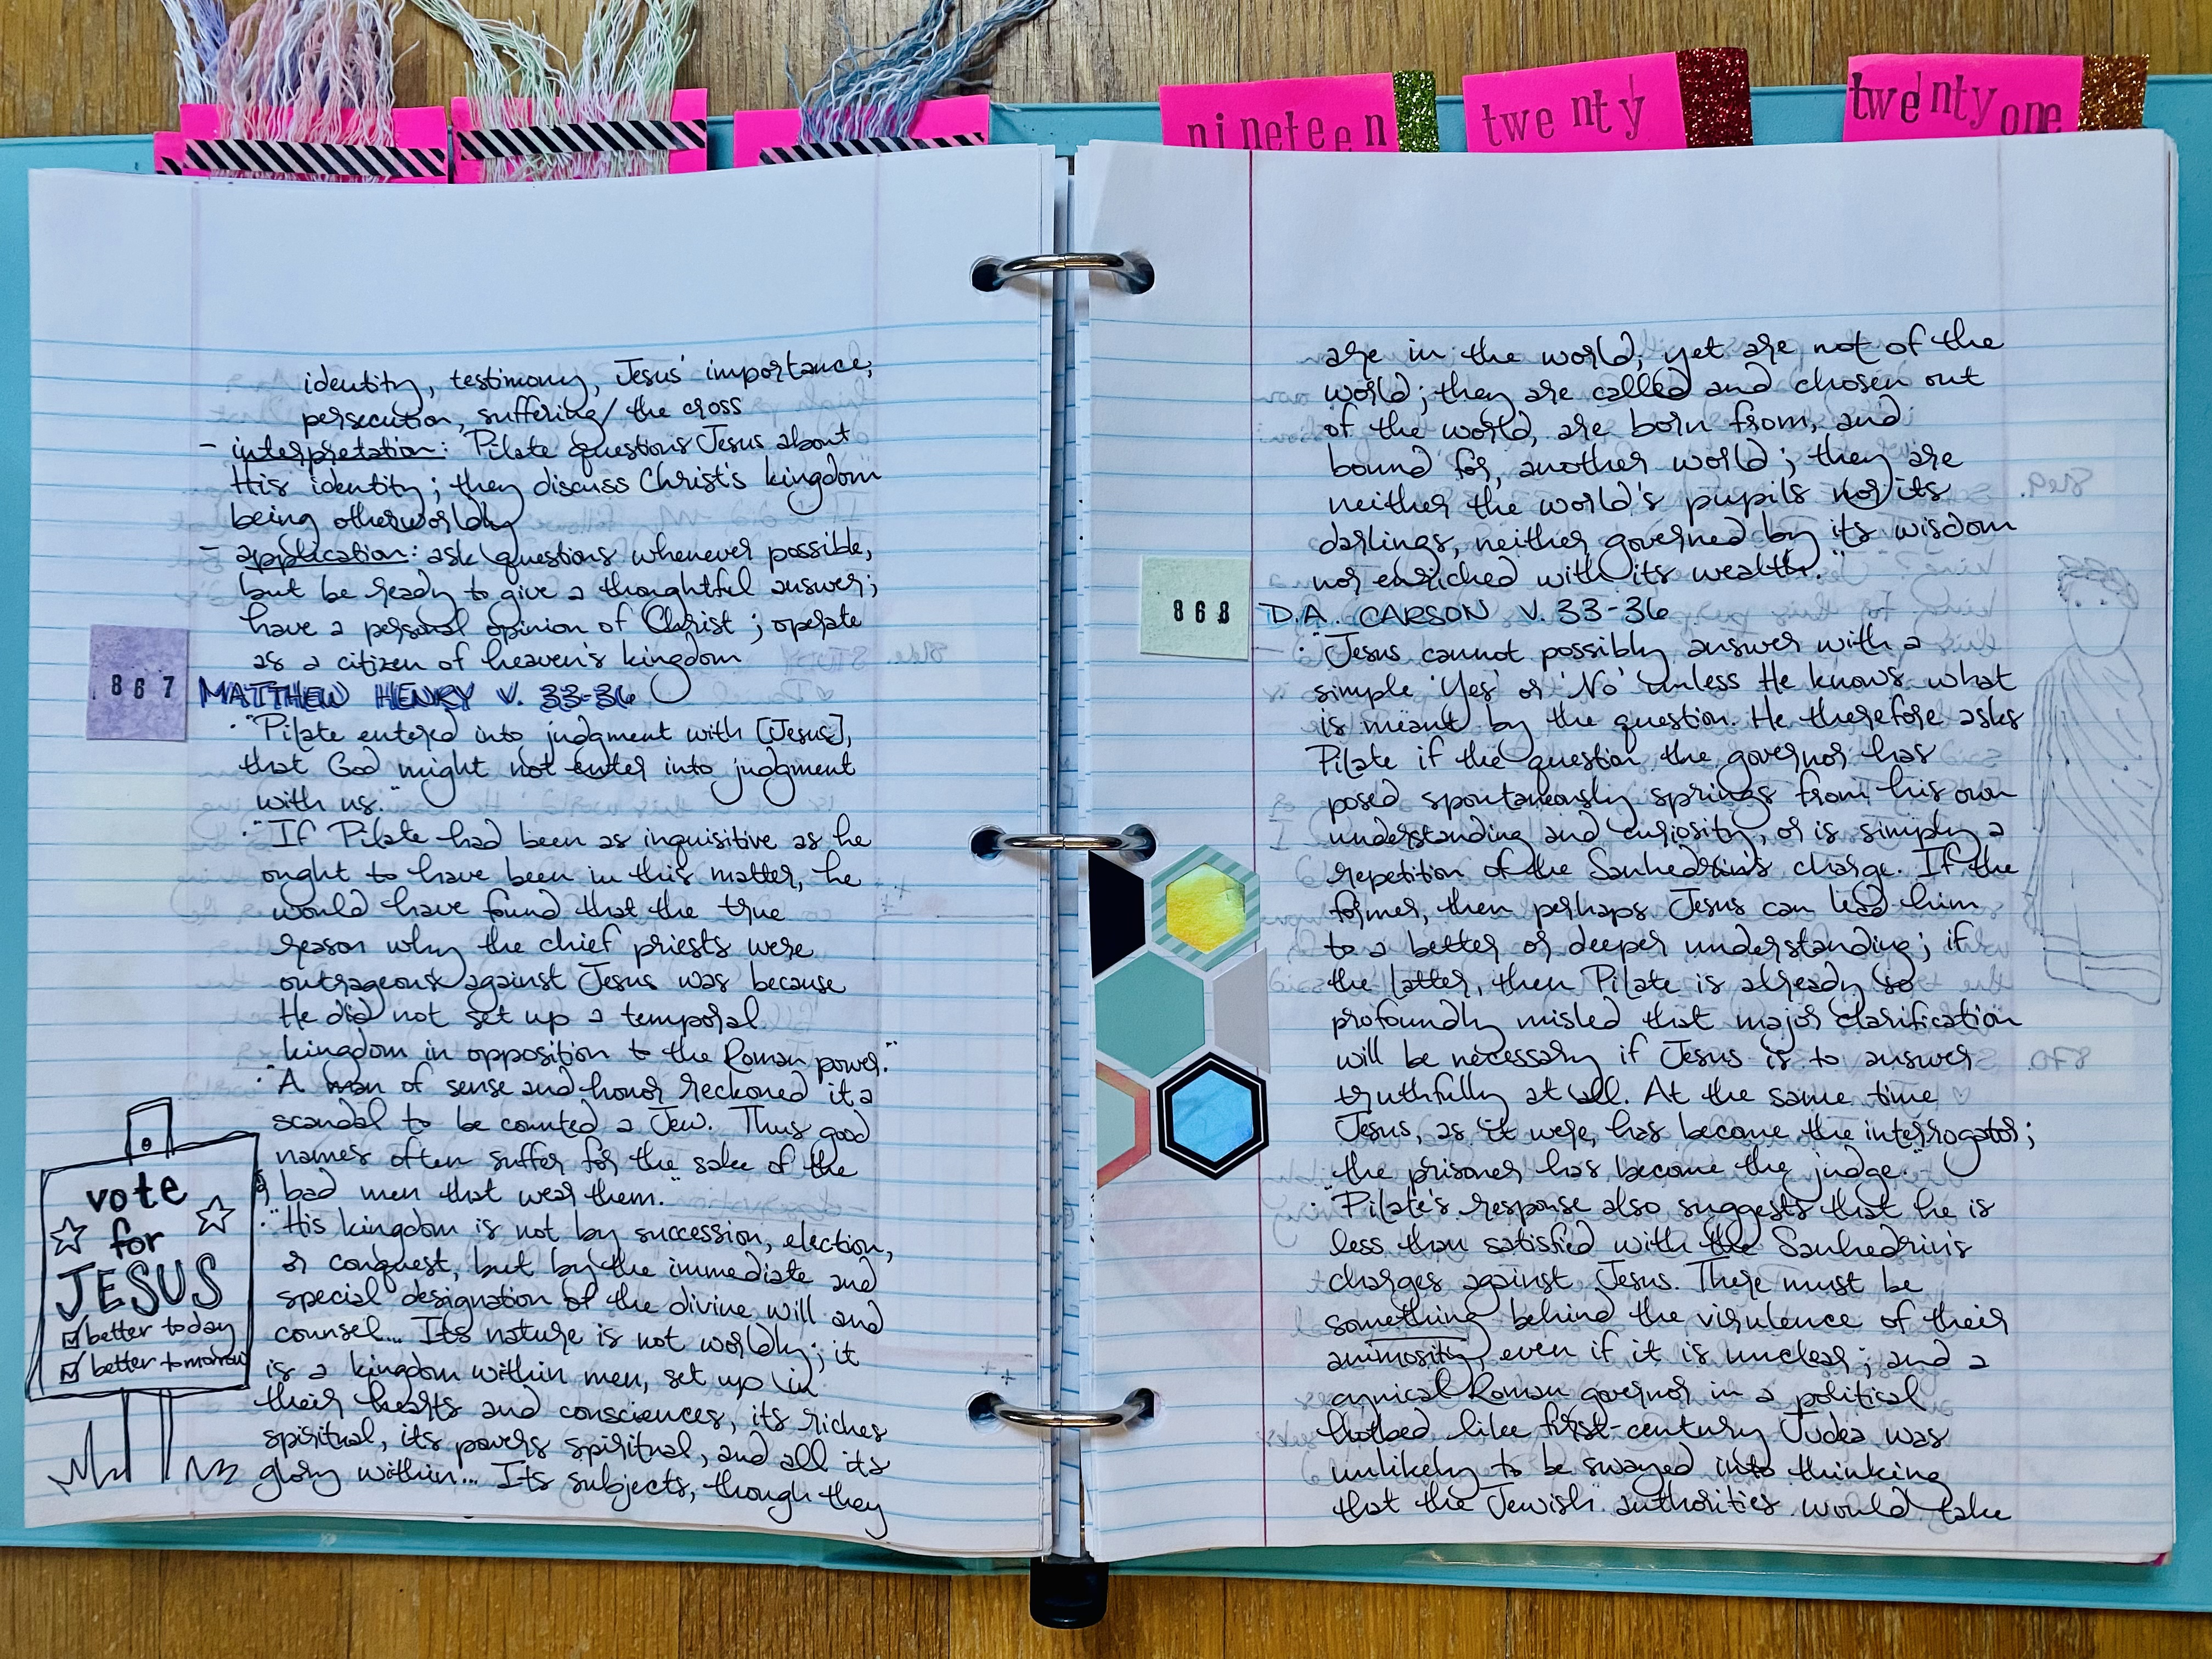 nineteen
twenty
twenty one
identity, testimony, Jesus' importance;
persecution, suffering/the cross
- interpretation: Pilate questions Jesus about
His identity; they discuss Christ's kingdom
being otherworldly
- application: ask questions whenever possible,
but be ready to give a thoughtful answer;
have a personal opinion of Christ; operate
as a citizen of heaven's kingdom
867
MATTHEW HENRY V. 33-36
· "Pilate entered into judgment with [Jesus],
that God might not enter into judgment
with us."
· "If Pilate had been as inquisitive as he
ought to have been in this matter, he
would have found that the true
reason why the chief priests were
outrageous against Jesus was because
He did not set up a temporal
kingdom in opposition to the Roman power."
· "A man of sense and honor reckoned it a
scandal to be counted a Jew. Thus good
names often suffer for the sake of the
bad men that wear them."
· "His kingdom is not by succession, election,
or conquest, but by the immediate and
special designation of the divine will and
counsel... Its nature is not worldly; it
is a kingdom within men, set up in
their hearts and consciences, its riches
spiritual, its powers spiritual, and all its
glory within... Its subjects, though they
vote
for
JESUS
better today
better tomorrow
are in the world, yet are not of the
world; they are called and chosen out
of the world, are born from, and
bound for, another world; they are
neither the world's pupils nor its
darlings, neither governed by its wisdom
nor enriched with its wealth."
868
D.A. CARSON V. 33-36
· "Jesus cannot possibly answer with a
simple 'Yes' or 'No' unless He knows what
is meant by the question. He therefore asks
Pilate if the question the governor has
posed spontaneously springs from his own
understanding and curiosity, or is simply a
repetition of the Sanhedrin's charge. If the
former, then perhaps Jesus can lead him
to a better or deeper understanding; if
the latter, then Pilate is already so
profoundly misled that major clarification
will be necessary if Jesus is to answer
truthfully at all. At the same time
Jesus, as it were, has become the interrogator;
the prisoner has become the judge."
· "Pilate's response also suggests that he is
less than satisfied with the Sanhedrin's
charges against Jesus. There must be
something behind the virulence of their
animosity, even if it is unclear; and a
cynical Roman governor in a political
hotbed like first-century Judea was
unlikely to be swayed into thinking
that the Jewish authorities would take